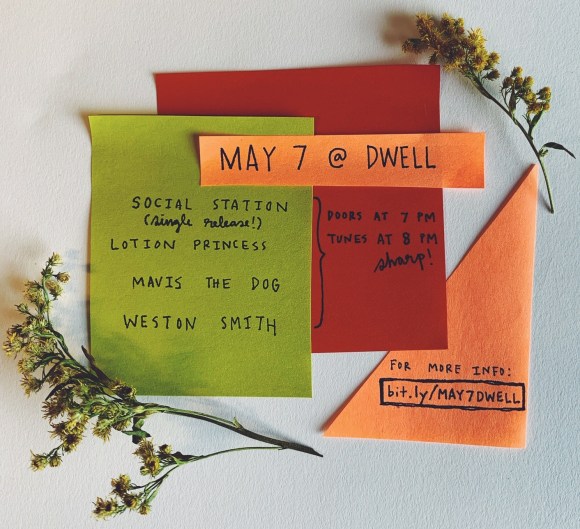 MAY 7 @ DWELL
SOCIAL STATION
(single release!)
LOTION PRINCESS
MAVIS THE DOG
WESTON SMITH
DOORS AT 7 PM
TUNES AT 8 PM
sharp!
FOR MORE INFO:
bit.ly/MAY7DWELL